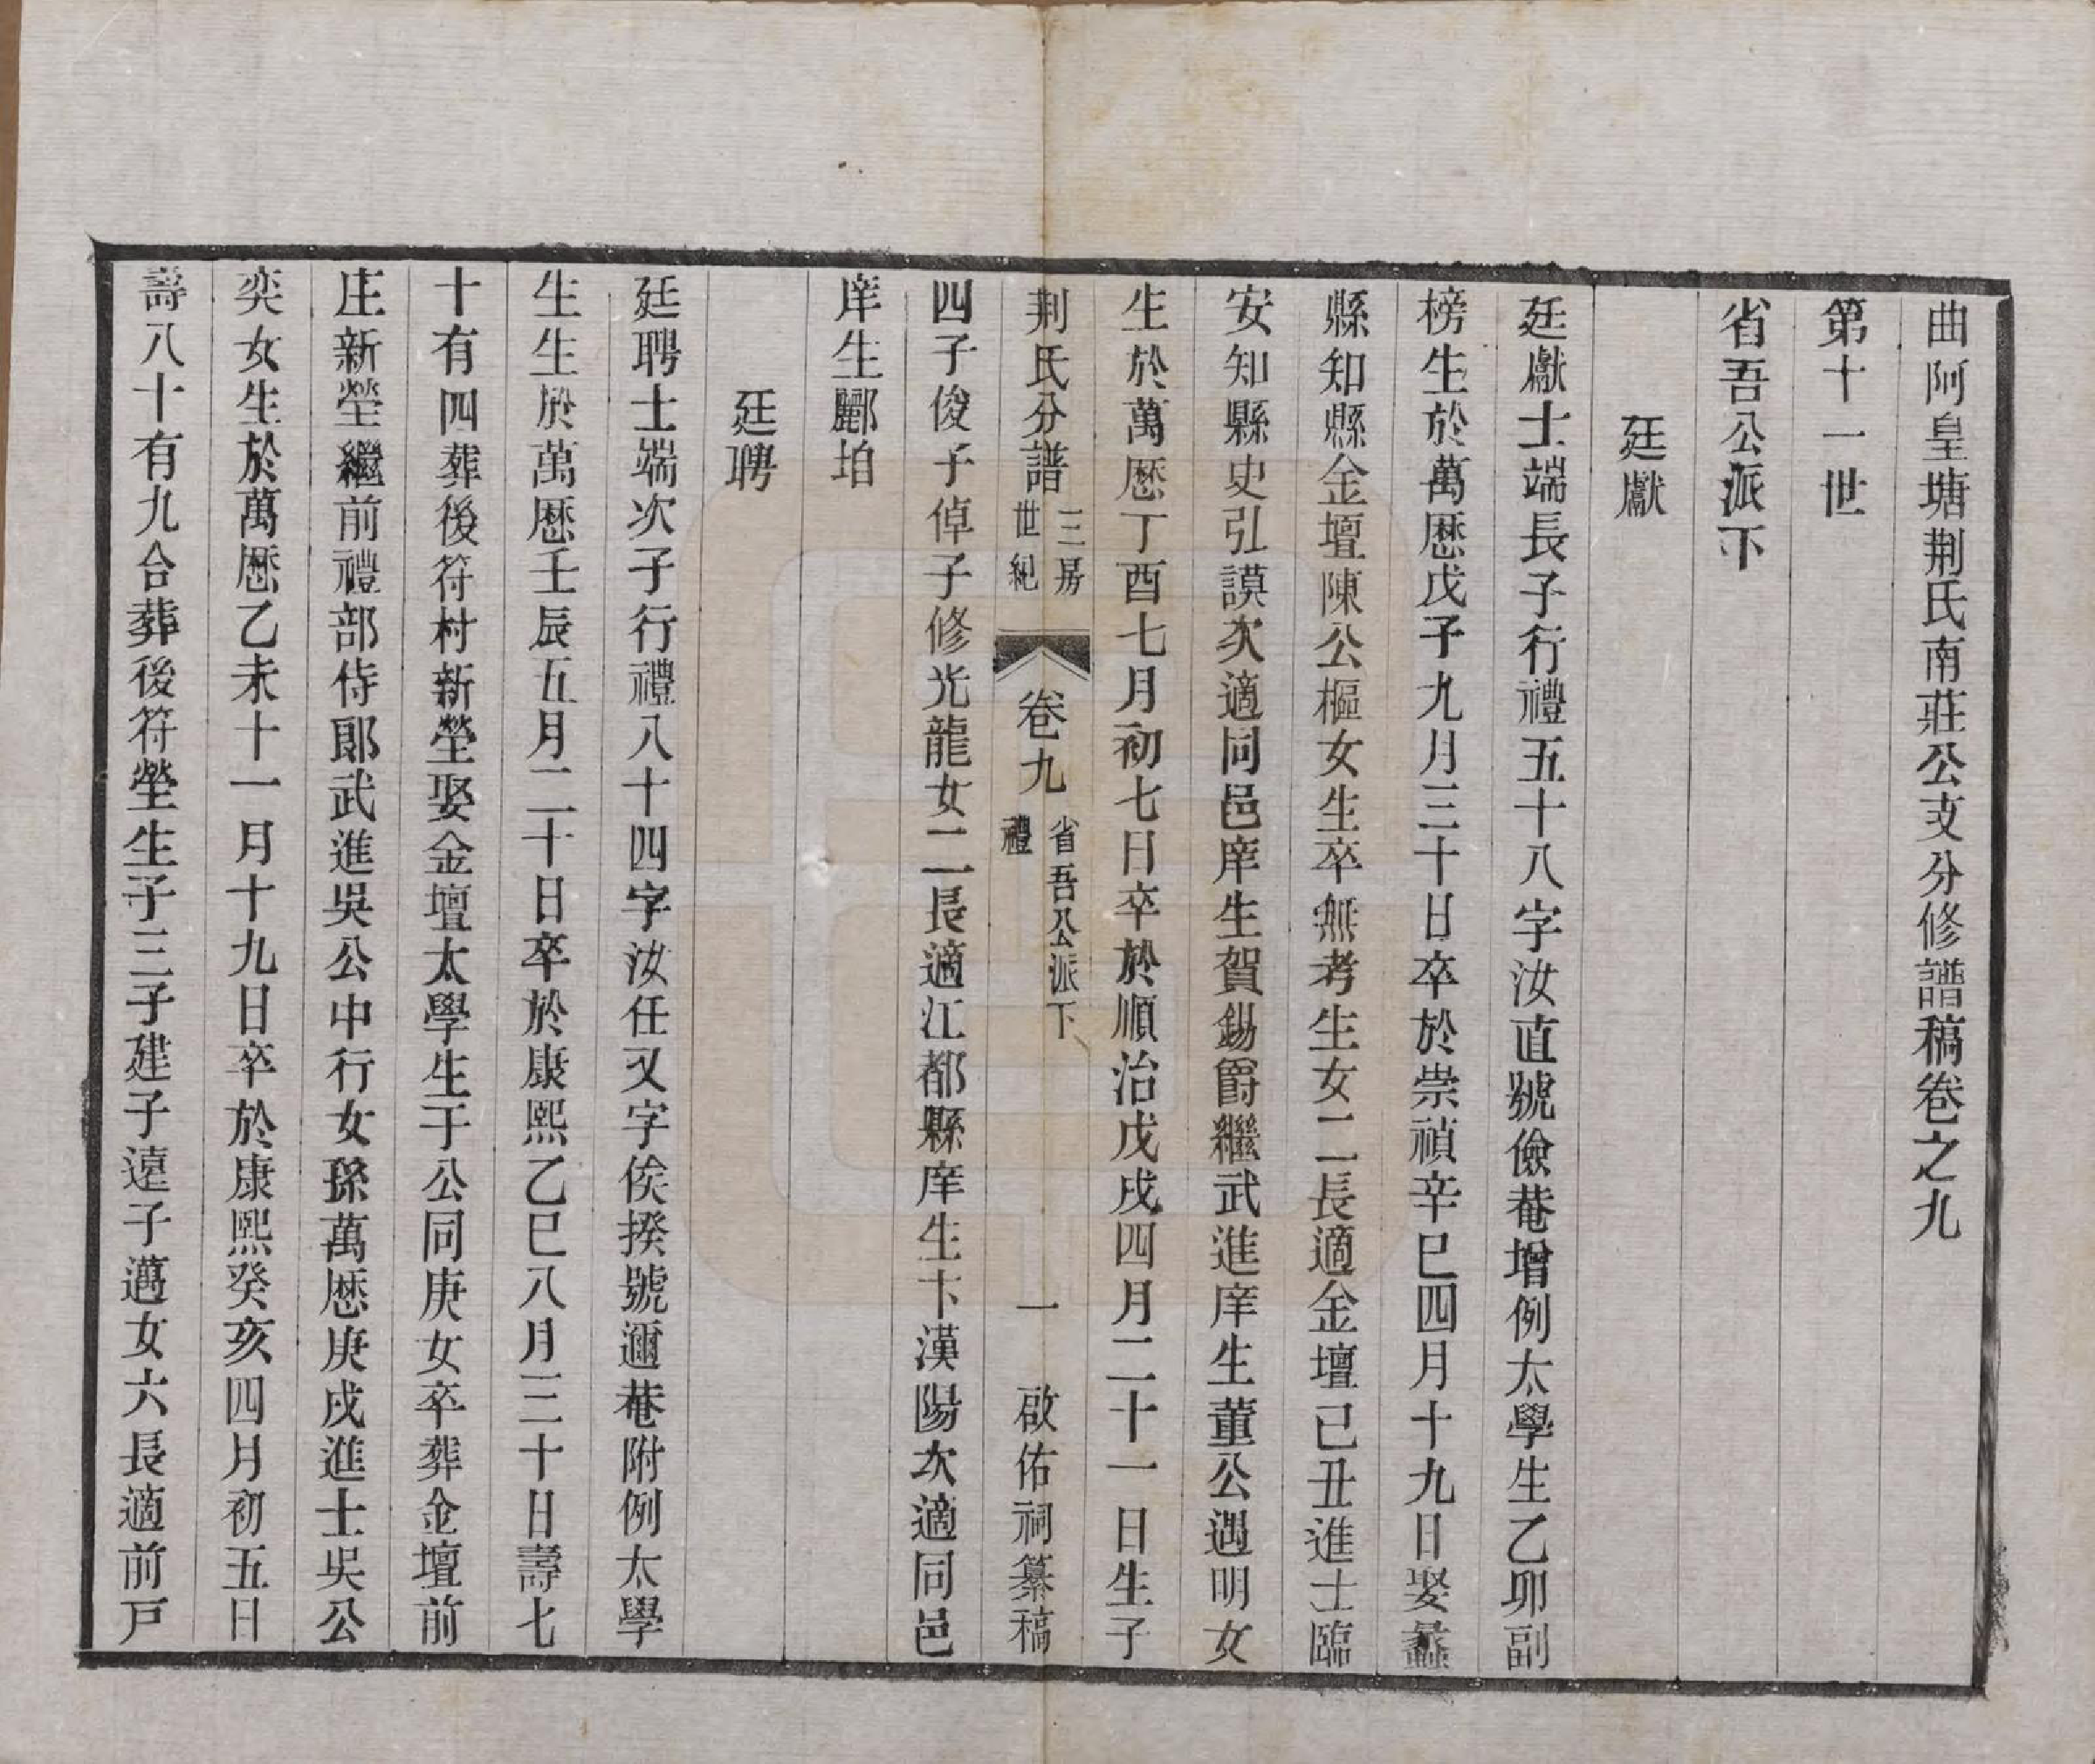 曲阿皇塘荆氏南莊公支分修譜稿卷之九
第十一世
省吾公派下
廷獻
廷獻士端長子行禮五十八字汝直號儉菴增例太學生乙卯副
榜生於萬歷戊子九月三十日卒於崇禎辛巳四月十九日娶蠡
縣知縣金壇陳公樞女生卒無考生女二長適金壇己丑進士臨
安知縣史弘謨次適同邑庠生賀錫爵繼武進庠生董公遇明女
生於萬歷丁酉七月初七日卒於順治戊戌四月二十一日生子
荆氏分譜
三房
世紀
卷九
省吾公派下
禮
一
啟佑祠纂稿
四子俊子倬子修光龍女二長適江都縣庠生卞漢陽次適同邑
庠生酈珀
廷聘
廷聘士端次子行禮八十四字汝任又字俟揆號邇菴附例太學
生生於萬歷壬辰五月二十日卒於康熙乙巳八月三十日壽七
十有四葬後符村新塋娶金壇太學生于公同庚女卒葬金壇前
庄新塋繼前禮部侍郎武進吳公中行女孫萬歷庚戌進士吳公
奕女生於萬歷乙未十一月十九日卒於康熙癸亥四月初五日
壽八十有九合葬後符塋生子三子建子遠子邁女六長適前戸